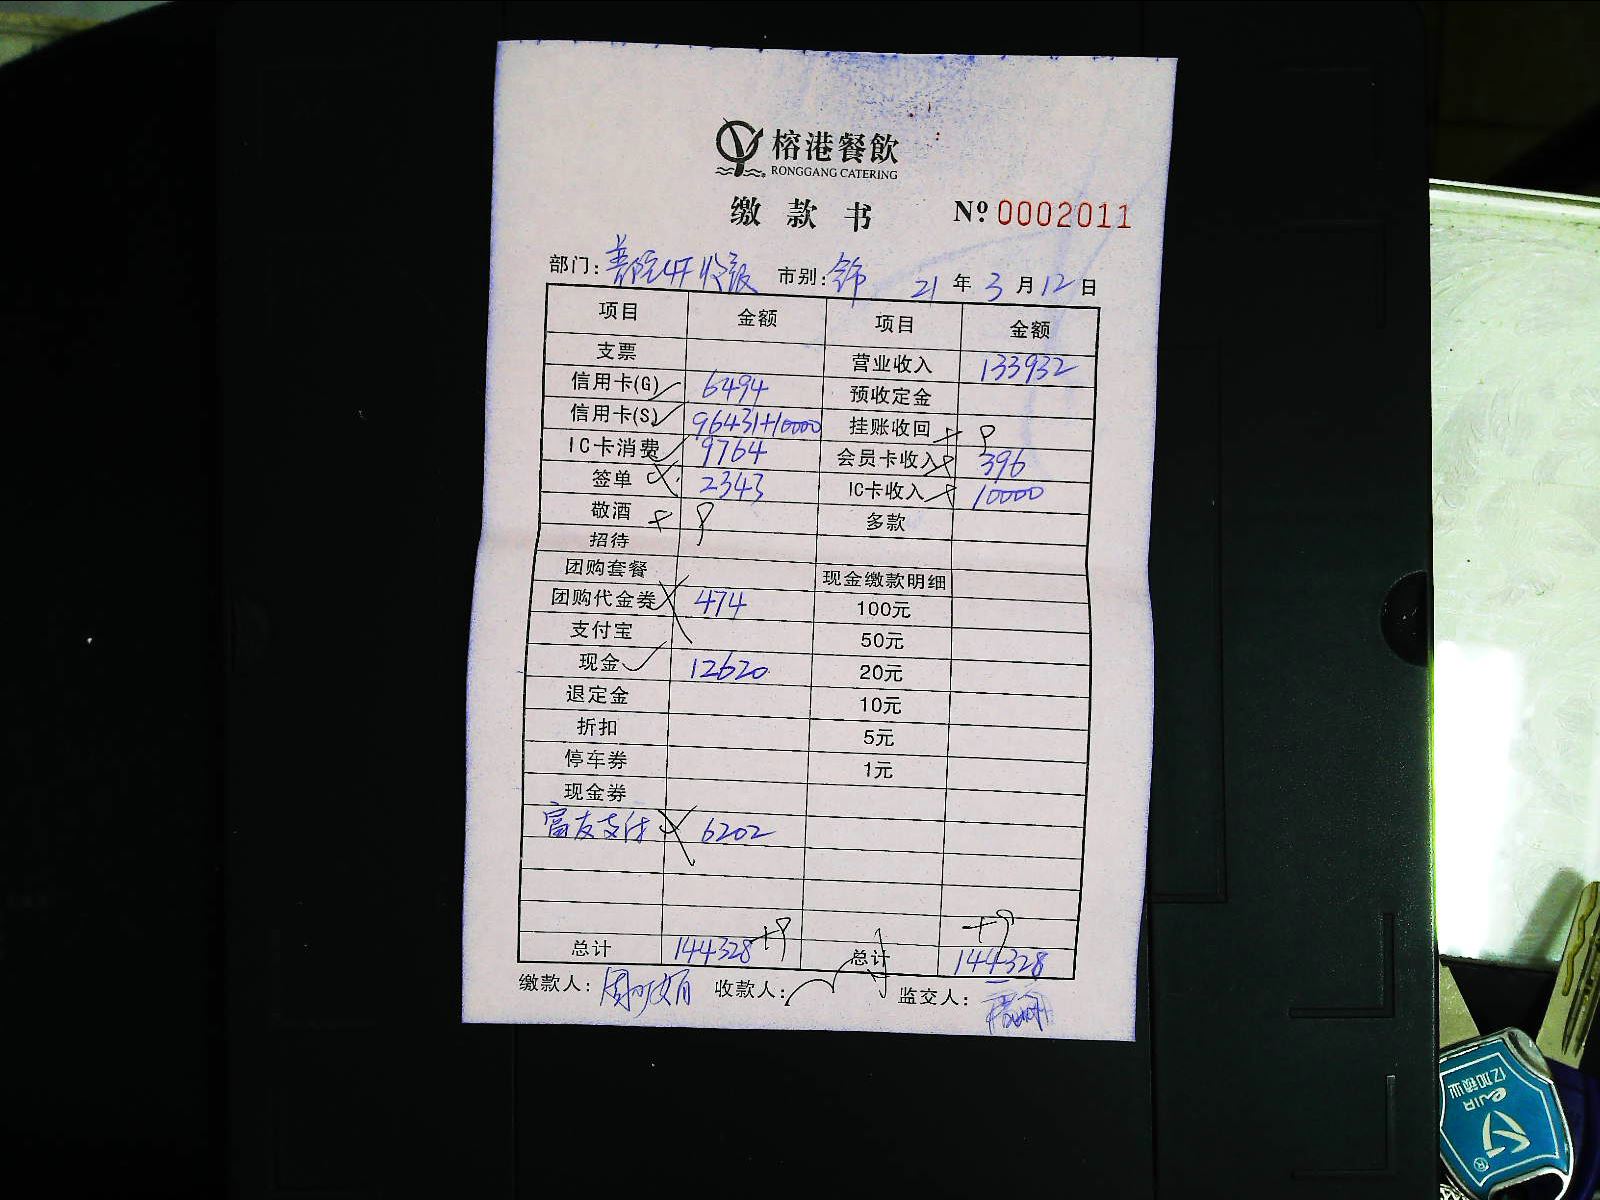 榕港餐飲
RONGGANG CATERING
缴款书 Nº 0002011
部门: 4F收银 市别: 21年3月12日
项目 金额 项目 金额
支票 营业收入 133932
信用卡(G) 6494 预收定金
信用卡(S) 96431+10000 挂账收回 +9
IC卡消费 9764 会员卡收入 396
签单 2343 IC卡收入 10000
敬酒 +9 多款
招待
团购套餐 现金缴款明细
团购代金券 474 100元
支付宝 50元
现金 12620 20元
退定金 10元
折扣 5元
停车券 1元
现金券
富友支付 6202
总计 144328+9 总计 144328+9
缴款人: 收款人: 监交人:
亿加锁业
eJIA
®